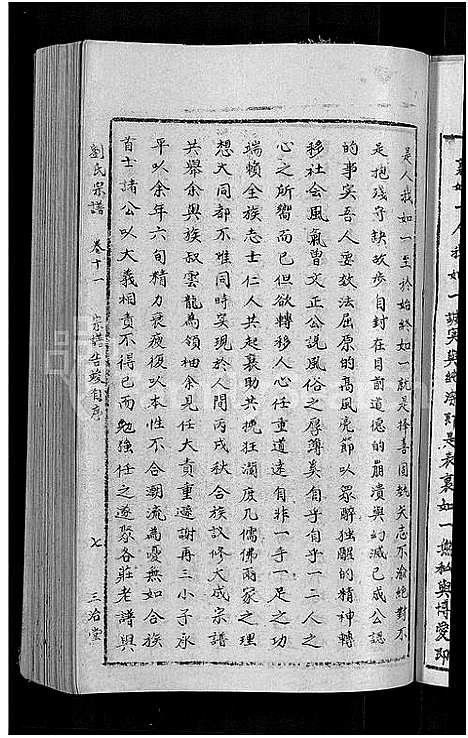 裏如一人我如一誠實與純潔計是表裏如一無私與博愛即
是人我如一至於始終如一就是擇善固執矢志不渝絕對不
是抱殘守缺故步自封在目前道德的崩潰與幻滅已成公認
的事實吾人亟效法屈原的高風亮節以眾醉獨醒的精神轉
移社會風氣曾文正公說風俗之厚薄奚自乎自乎一二人之
心之所嚮而已但欲轉移人心任重道遠自非一手一足之功
端賴全族志士仁人共起襄助共挽狂瀾度几儒佛兩家之理
想大同都不難同時實現於人間丙戌秋合族議修大成宗譜
共舉余與族叔雲龍為領袖余見任大責重遜謝再三小子永
平以余年六旬精力衰疲復以本性不合潮流為憂無如合族
首士諸公以大義相責不得已而勉強任之遂聚各莊老譜與
劉氏宗譜 卷十一 宗譜告竣自序 七 三治堂